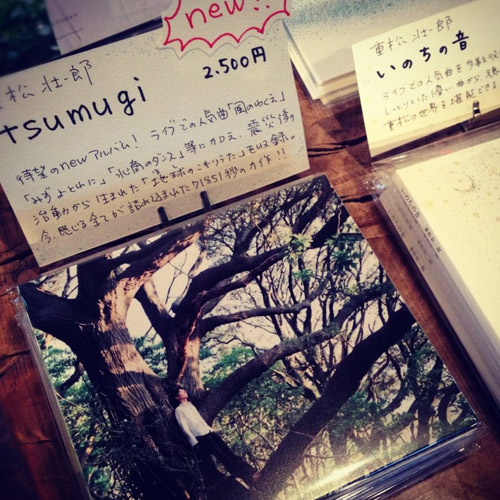 new!!
重松 壮一郎
2.500円
tsumugi
待望のnewアルバム! ライブでの人気曲「風のゆくえ」
「みずよとわに」「氷裔のダンス」等にカロえ、震災後の
活動から生まれた「地球のこもりうた」も収録。
今、感じる全てが詰め込まれた71分51秒のカイ作!!
重松 壮一郎
いのちの音
ライブでの人気曲を多数収
しっとりとした優しい曲から、
重松の世界を堪能できる